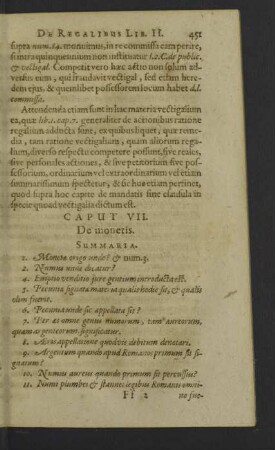 DE REGALIBUS LIB. II. 451
supra num. 14. monuimus, in re commissa eam perire,
si intra quinquennium non instituatur l. 2. C. de public.
& vectigal. Competit vero hæc actio non solum ad-
versus eum, qui fraudavit vectigal, sed etiam hære-
dem ejus, & quemlibet possessorem locum habet d. l.
commissa.
Attendenda etiam sunt in hac materia vectigalium
ea, quæ lib. 1. cap. 7. generaliter de actionibus ratione
regalium adducta sunt, ex quibus liquet, quæ reme-
dia, tam ratione vectigalium, quam aliorum rega-
lium, diverso respectu competere possint, sive reales,
sive personales actiones, & sive petitorium sive pos-
sessorium, ordinarium vel extraordinarium vel etiam
summarissimum spectetur, & sic huc etiam pertinet,
quod supra hoc capite de mandatis sine claudula in
specie quoad vectigalia dictum est.
CAPUT VII.
De monetis.
SUMMARIA.
1. Moneta origo unde? & num. 3.
2. Numus unde dicatur?
4. Emptio venditio jure gentium introducta est.
5. Pecunia signata materia qualis hodie sit, & qualis
olim fuerit.
6. Pecunia unde sic appellata sit?
7. Per æs omne genus numorum, tam aureorum,
quam argenteorum significatur.
8. Æris appellatione quodvis debitum denotari.
9. Argentum quando apud Romanos primum sit si-
gnatum?
10. Numus aureus quando primum sit percussus?
11. Numi plumbei & stannei legibus Romanis omni-
Ff 2 no sue-